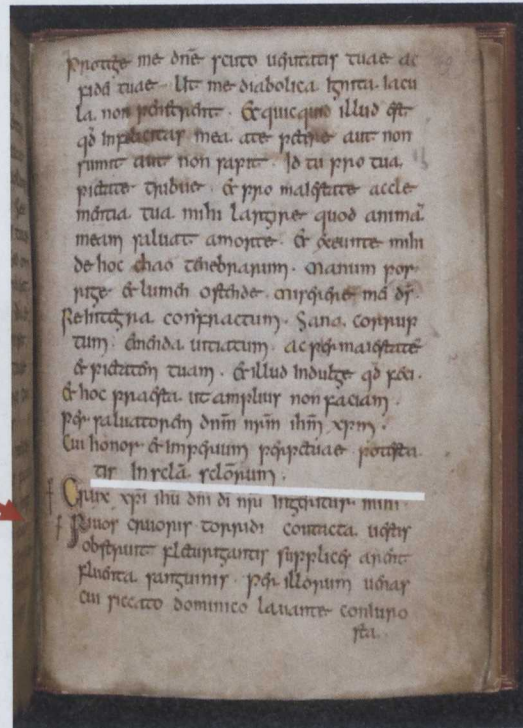 Protige me dn̄e scuto ueritatis tuae ac
fidei tuae · Ut me diabolica ignita iacu
la non penetrent · Et quicquid illud est
qd̄ infelicitas mea ate petire aut non
sumit aut non sapit · Id tu pro tua
pietate tribue · et pro maiestate accle
mentia tua mihi largire quod animā
meam saluat amorte · Et exeunte mihi
de hoc chao tenebrarum · Manum por
rige et lumen ostende · miserere me ds̄ ·
Reintegra confractum · Sana corrup
tum · emenda uitiatum · ac per maiestatē
et pietatem tuam · Et illud indulge qd̄ feci ·
et hoc praesta ut amplius non faciam ·
per saluatorem dnm̄ nrm̄ ihm̄ xpm̄ ·
Cui honor et imperium perpetuae potesta
tis In scl̄a scl̄orum ·
Crux xp̄i ihū dnī dī nr̄i ingeritur mihi ·
Riuos cruoris torridi contacta uestis
obstruit fleturigantis supplicis arent
fluenta sanguinis · Per illorum uenas
cui siccato dominico lauante coniuro
sta ·